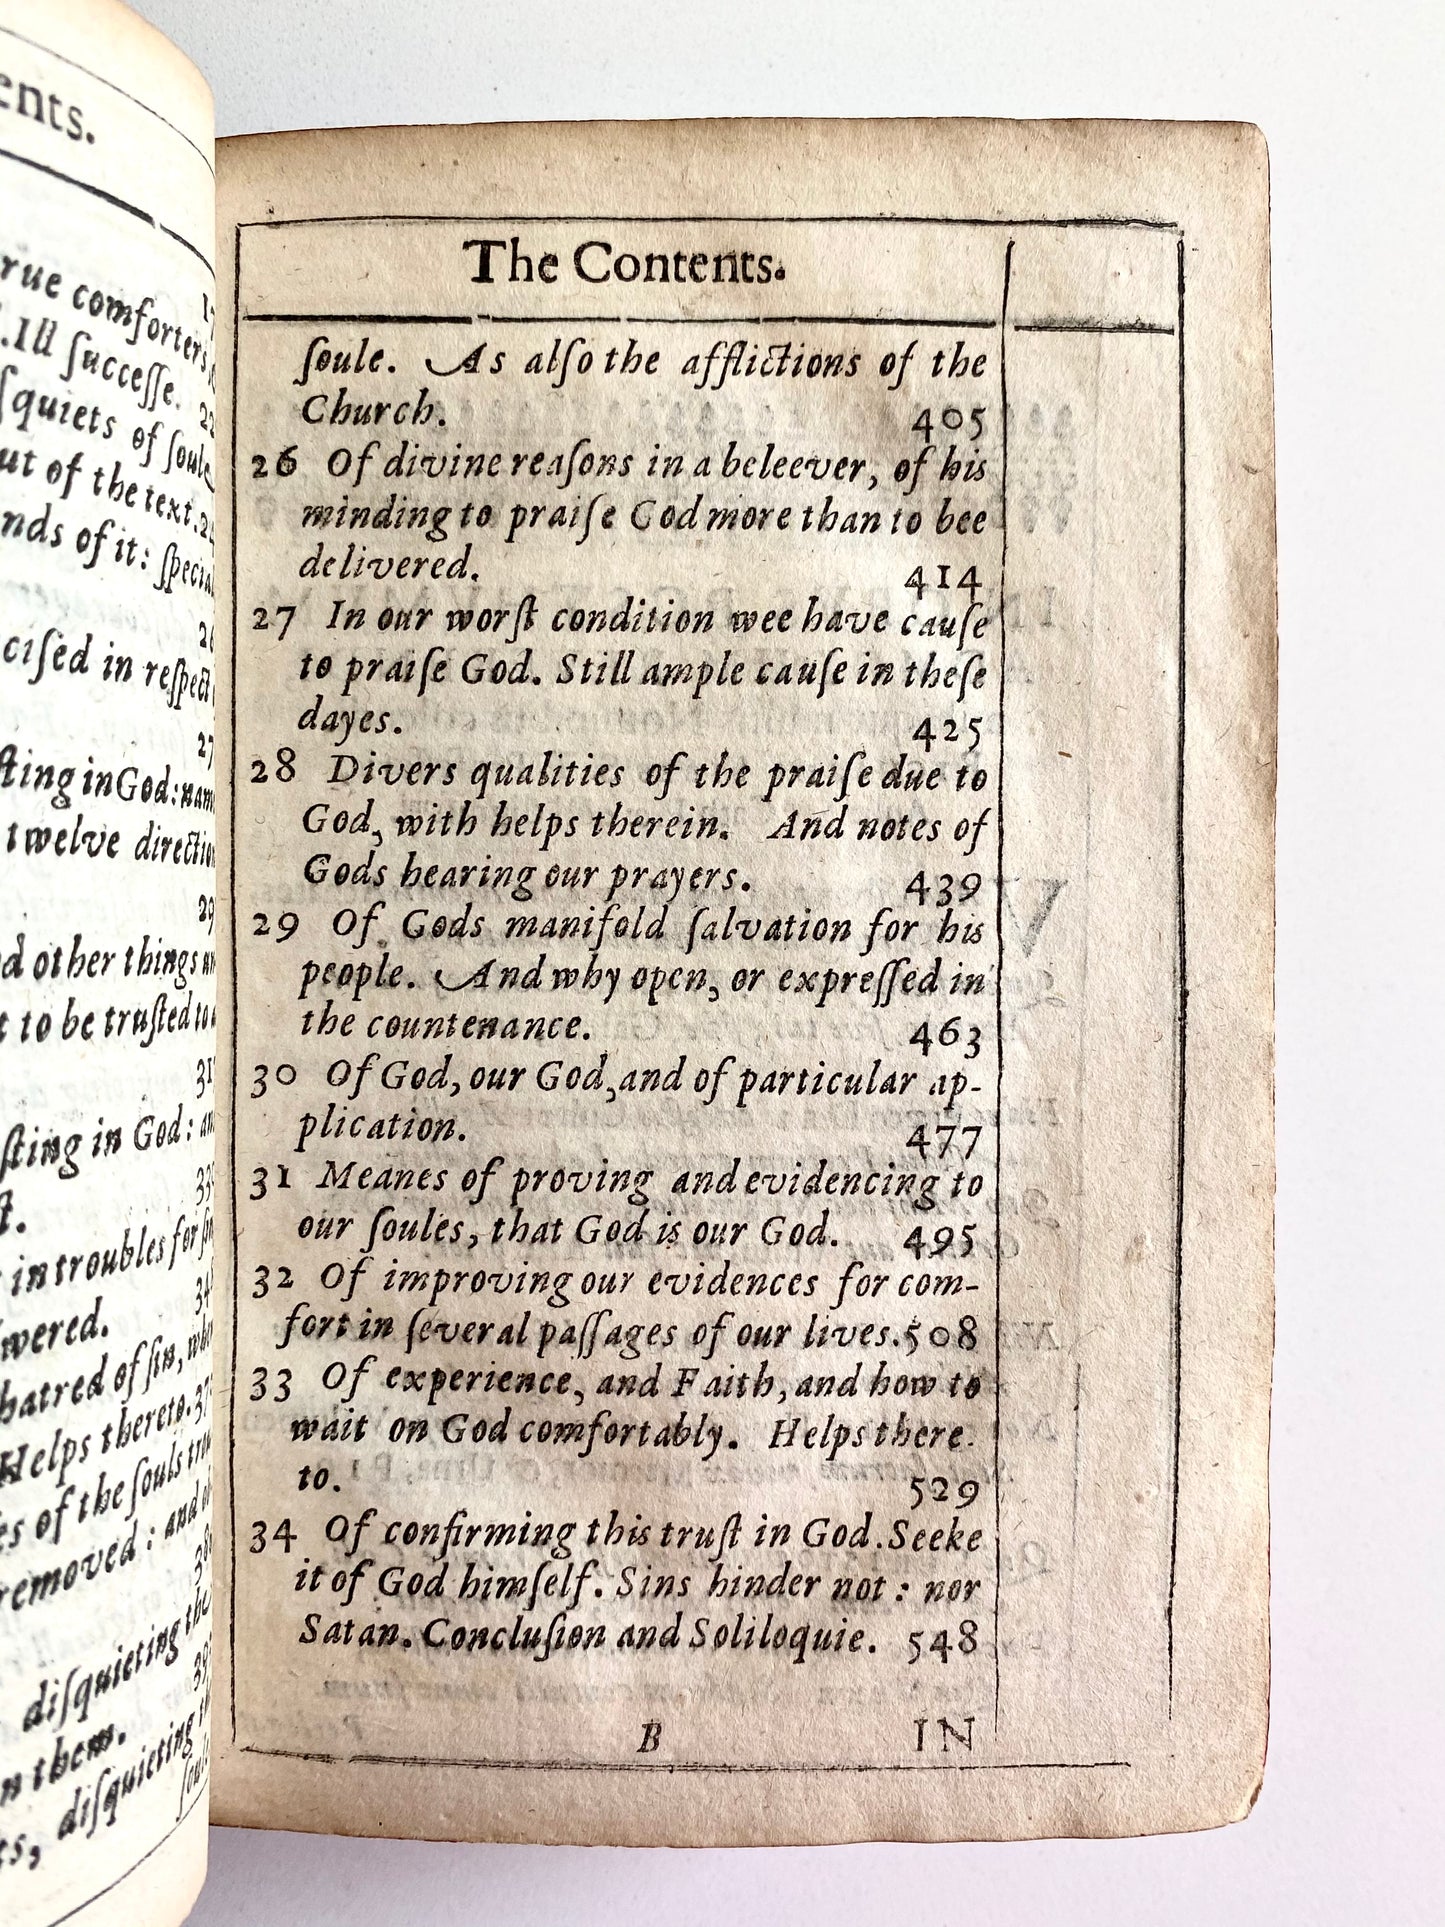 ents.
rue comforters,
17
.Ill ſucceſſe.
22
ſquiets of ſoule
ut of the text.24
nds of it: ſpecial
26
ciſed in reſpect
27
ſting in God: nam
twelve directio
29
d other things
t to be truſted to
31
ſting in God: an
33
ſt.
in troubles for ſin
34
wered.
hatred of ſin,
Helps thereto.37
es of the ſouls trou
removed: and
38
diſquieting the
39
n them.
ts, diſquieting th
ſoule
The Contents.
ſoule. As alſo the afflictions of the
Church. 405
26 Of divine reaſons in a beleever, of his
minding to praiſe God more than to bee
delivered. 414
27 In our worſt condition wee have cauſe
to praiſe God. Still ample cauſe in theſe
dayes. 425
28 Divers qualities of the praiſe due to
God, with helps therein. And notes of
Gods hearing our prayers. 439
29 Of Gods manifold ſalvation for his
people. And why open, or expreſſed in
the countenance. 463
30 Of God, our God, and of particular ap-
plication. 477
31 Meanes of proving and evidencing to
our ſoules, that God is our God. 495
32 Of improving our evidences for com-
fort in ſeveral paſſages of our lives. 508
33 Of experience, and Faith, and how to
wait on God comfortably. Helps there
to. 529
34 Of confirming this truſt in God. Seeke
it of God himſelf. Sins hinder not: nor
Satan. Concluſion and Soliloquie. 548
B IN